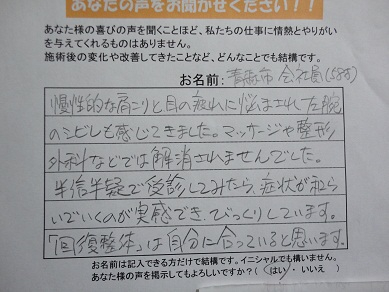 あなたの声をお聞かせください！！
あなた様の喜びの声を聞くことほど、私たちの仕事に情熱とやりがい
を与えてくれるものはありません。
施術後の変化や改善してきたことなど、どんなことでも結構です。
お名前: 青森市 会社員(58才)
慢性的な肩こりと目の疲れに悩まされ左腕
のシビレも感じてきました。マッサージや整形
外科などでは解消されませんでした。
半信半疑で受診してみたら、症状が和ら
いでいくのが実感でき、びっくりしています。
「回復整体」は自分に合っていると思います。
お名前は記入できる方だけで結構です。イニシャルでも構いません。
あなた様の声を掲示してもよろしいですか？（はい・いいえ ）